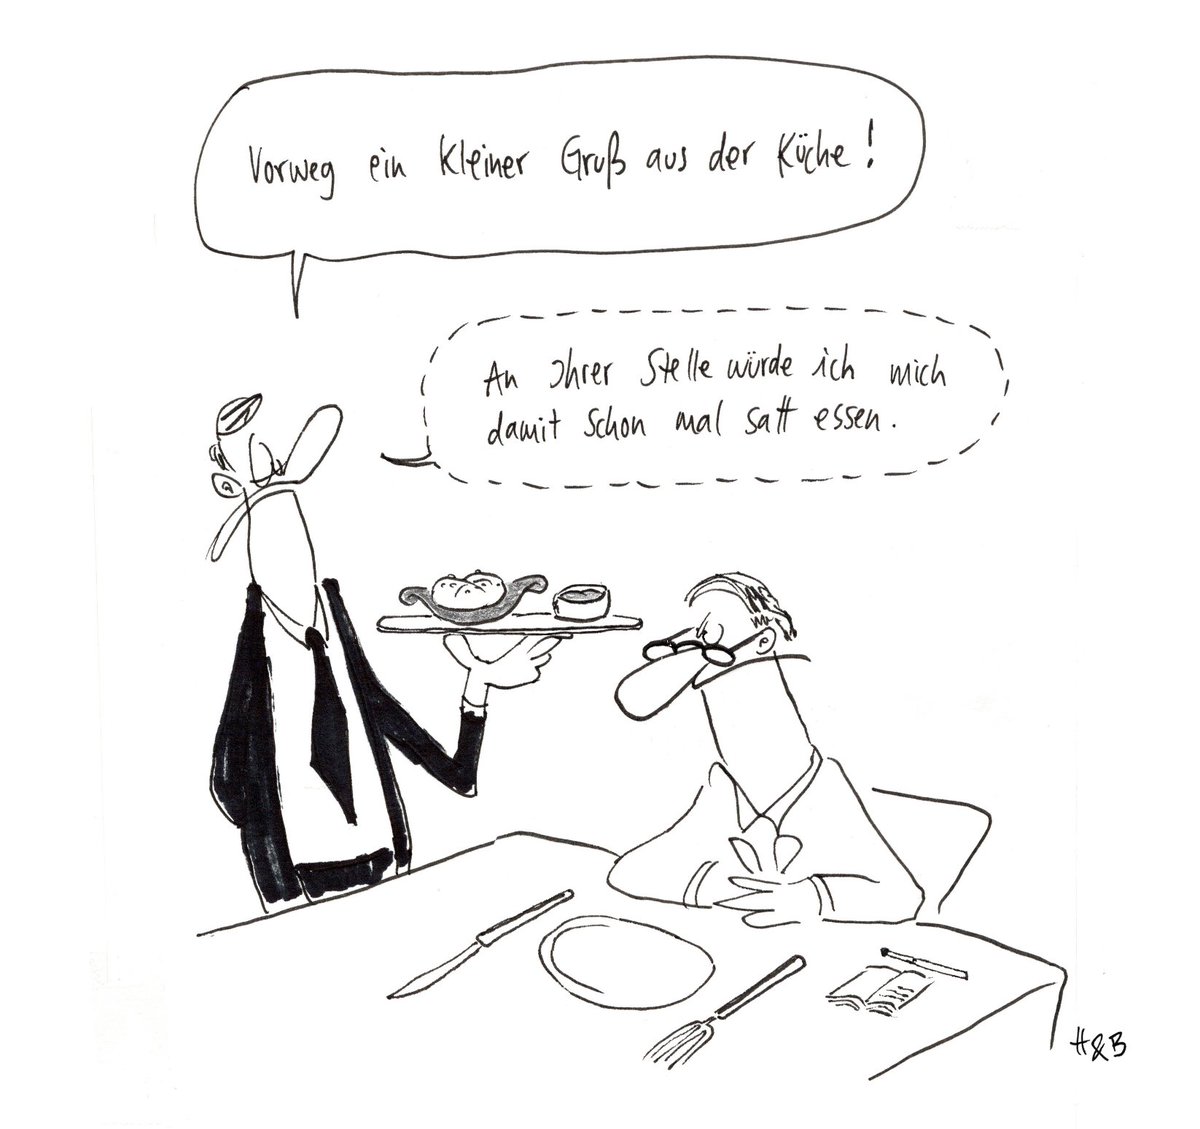 Vorweg ein kleiner Gruß aus der Küche!
An Ihrer Stelle würde ich mich
damit schon mal satt essen.
H&B